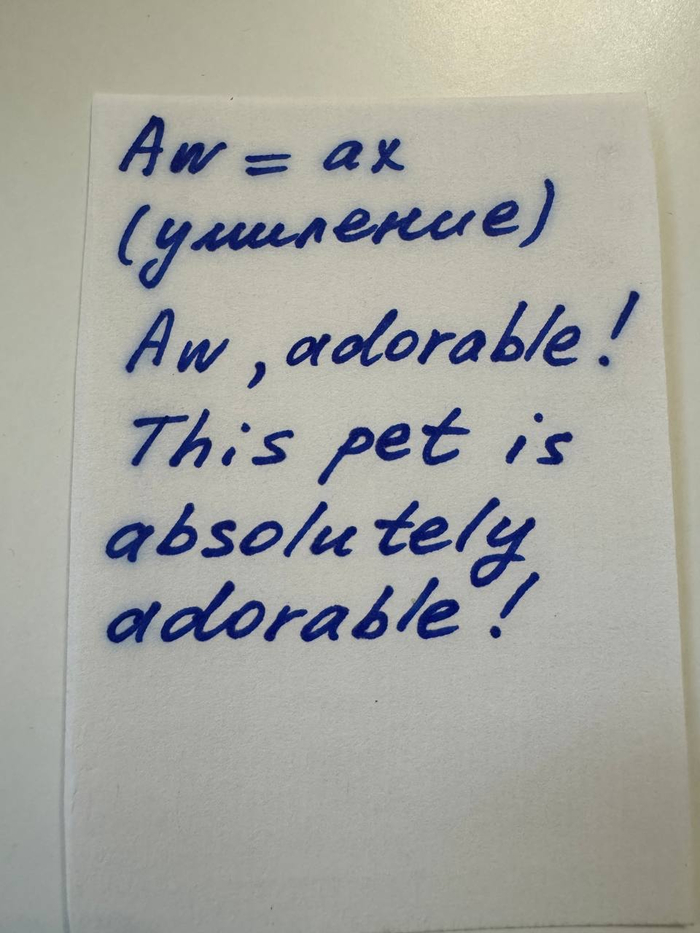 Aw = ах
(умиление)
Aw, adorable!
This pet is
absolutely
adorable!